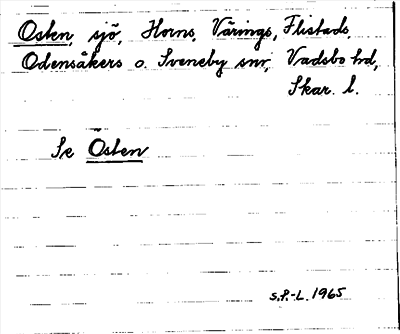 Osten, sjö, Horns, Värings, Flistads,
Odensåkers o. Sveneby snr, Vadsbo hd,
Skar. l.
Se Östen
S.P.-L. 1965